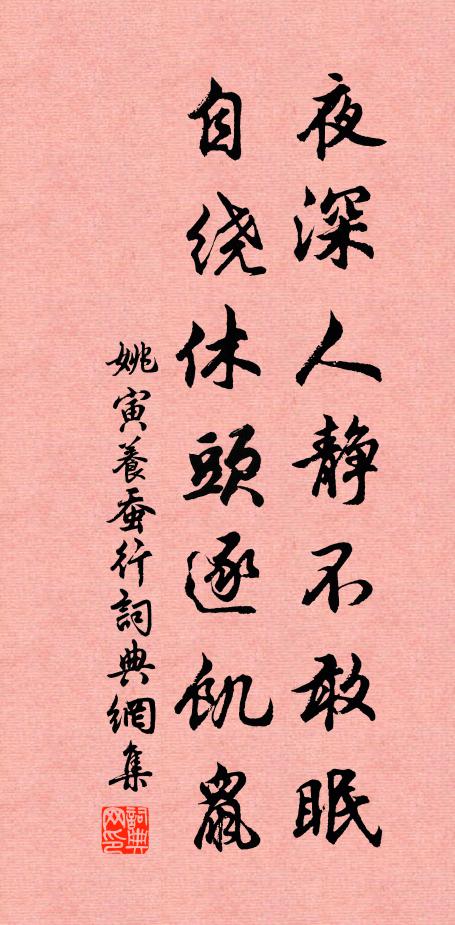 夜深人静不敢眠
自绕休頭逐飢鼠
姚寅養蚕行詞典網集
詞典网印